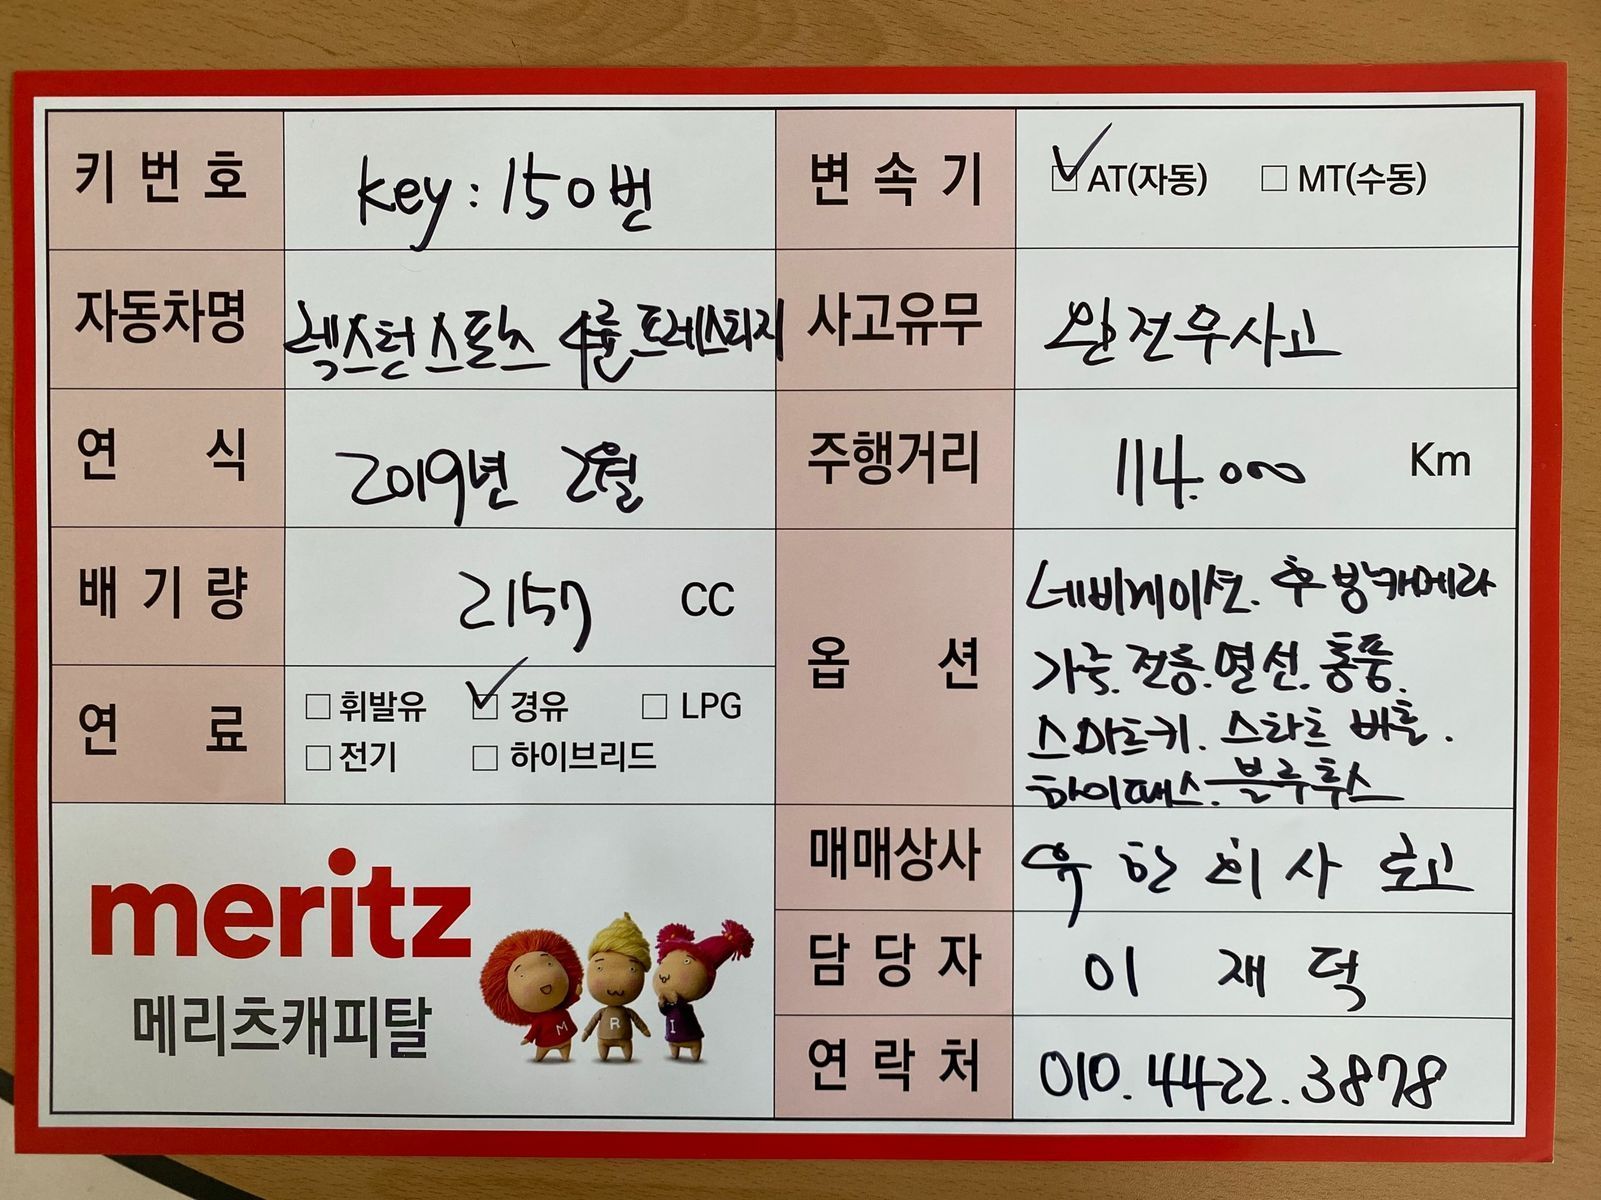 키 번 호 key : 150번
변 속 기 ☑ AT(자동) ☐ MT(수동)
자동차명 렉스턴스포츠 4륜 프레스티지
사고유무 완전무사고
연 식 2019년 2월
주행거리 114.000 Km
배 기 량 2157 CC
옵 션
네비게이션. 후방카메라
가죽. 전동. 열선. 통풍.
스마트키. 스타트 버튼.
하이패스. 블루투스
연 료
☐ 휘발유 ☑ 경유 ☐ LPG
☐ 전기 ☐ 하이브리드
meritz
메리츠캐피탈
M R I
매매상사 유 한 회 사
담 당 자 이 재 덕
연 락 처 010.4422.3878